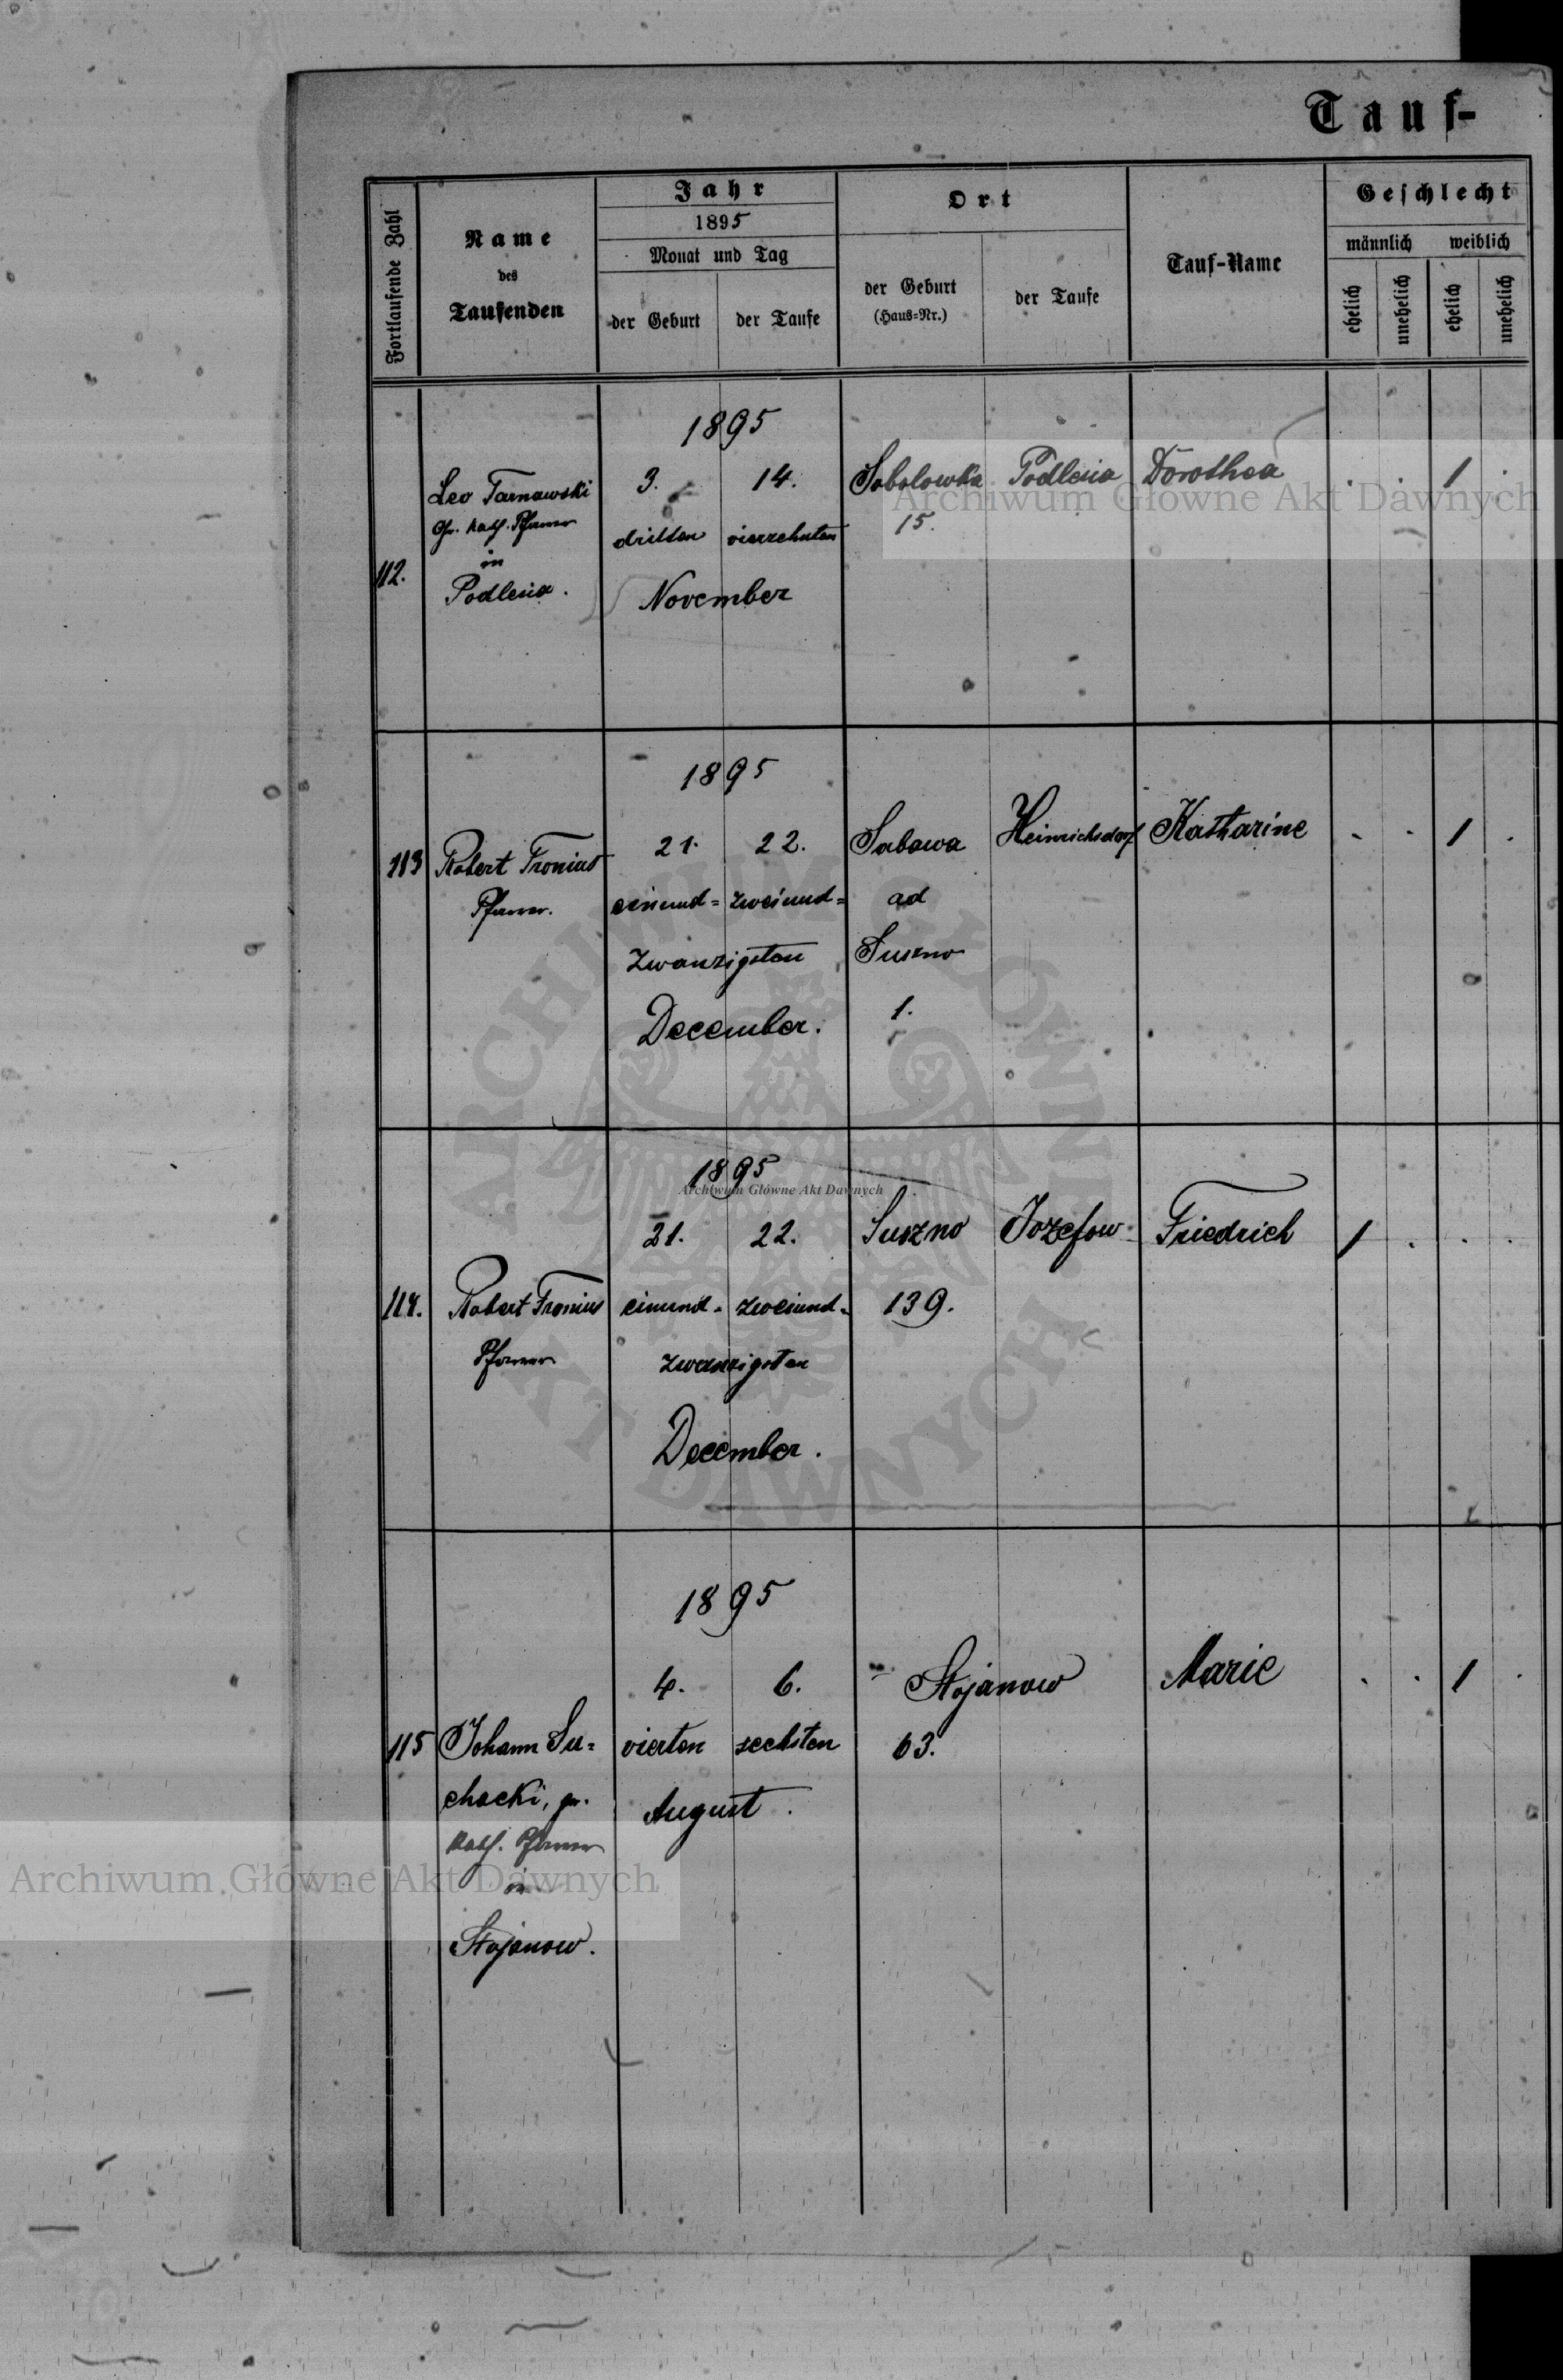 Tauf-
Fortlaufende Zahl
Name
des
Taufenden
Jahr
1895
Monat und Tag
der Geburt
der Taufe
Ort
der Geburt
(Haus-Nr.)
der Taufe
Tauf-Name
Geschlecht
männlich
weiblich
ehelich
unehelich
ehelich
unehelich
112.
Leo Tarnawski
Gr. kath. Pfarrer
in
Podlesia.
1895
3. 14.
dritten vierzehnten
November
Sobolowka
15.
Podlesia
Dorothea
. . 1 .
113
Robert Fronius
Pfarrer.
1895
21. 22.
einund= zweiund=
zwanzigsten
December.
Sabawa
ad
Suszno
1.
Heinrichsdorf
Katharine
. . 1 .
114.
Robert Fronius
Pfarrer
1895
21. 22.
einund= zweiund=
zwanzigsten
December.
Suszno
139.
Jozefow
Friedrich
1 . . .
115
Johann Su=
chacki, gr.
kath. Pfarrer
in
Stojanow.
1895
4. 6.
vierten sechsten
August.
Stojanow
63.
Marie
. . 1 .
Archiwum Główne Akt Dawnych
ARCHIWUM GŁÓWNE AKT DAWNYCH
Archiwum Główne Akt Dawnych
Archiwum Główne Akt Dawnych